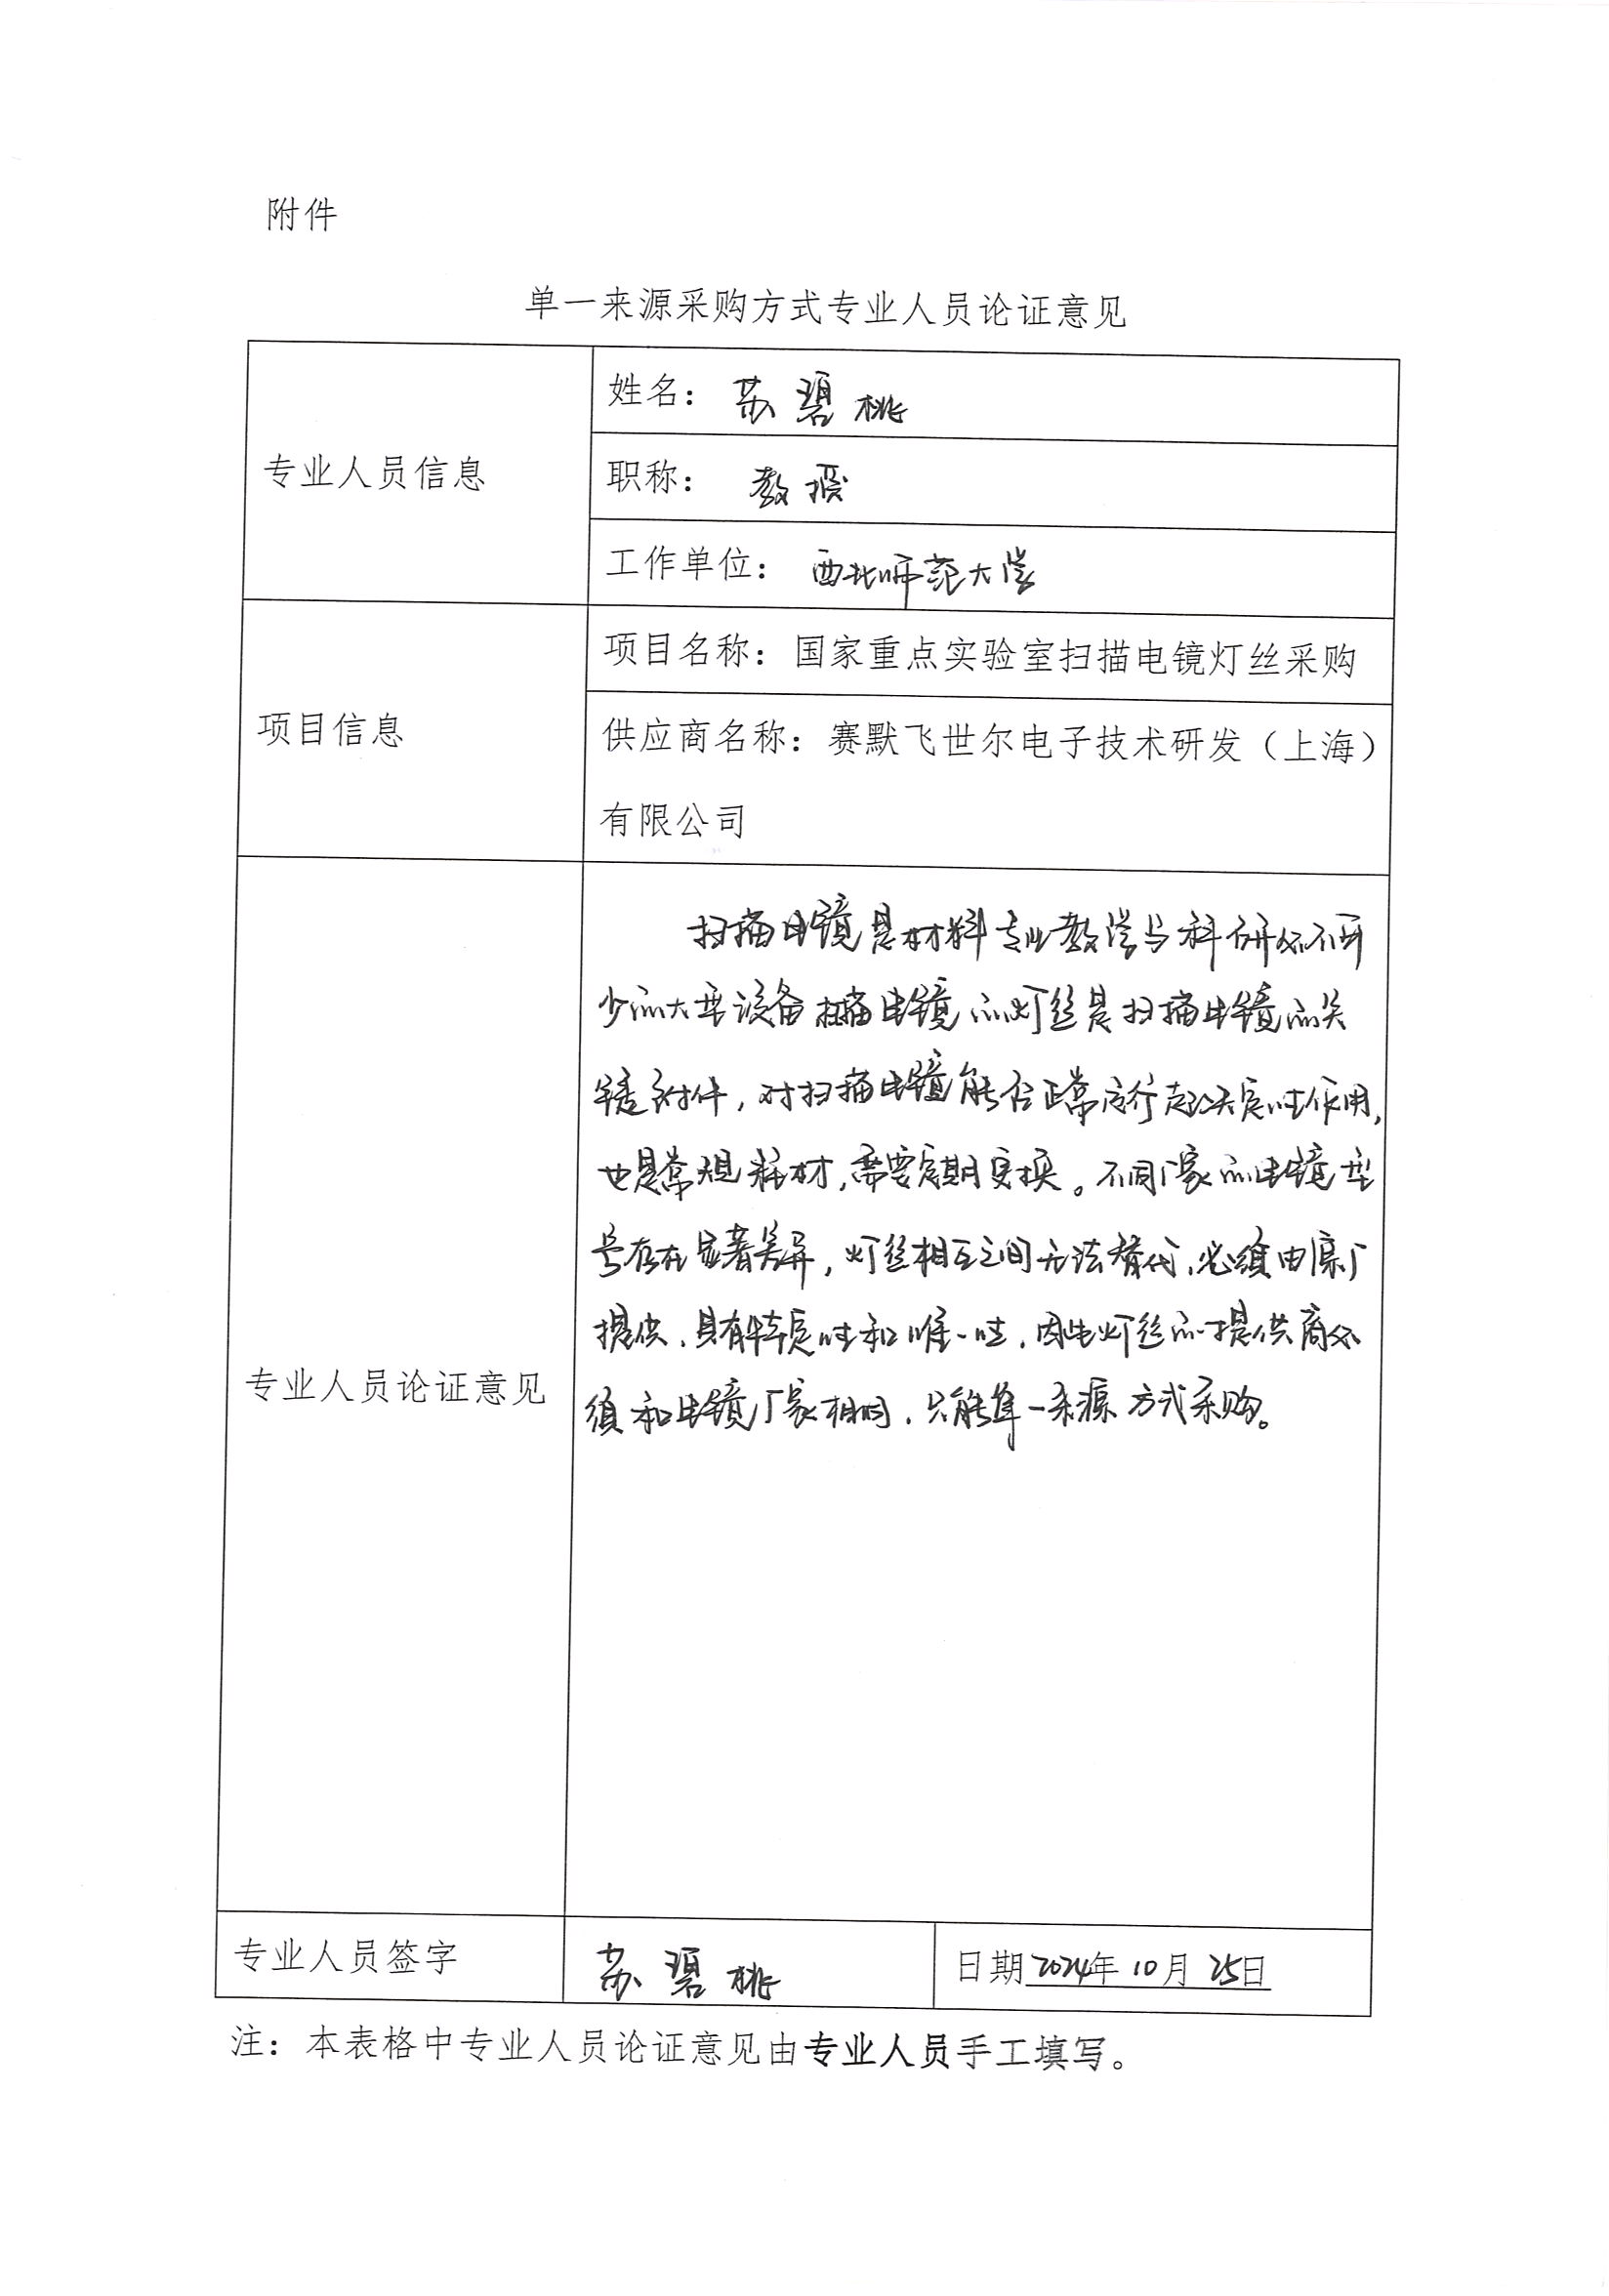 附件
单一来源采购方式专业人员论证意见
专业人员信息
姓名：苏碧桃
职称：教授
工作单位：西北师范大学
项目信息
项目名称：国家重点实验室扫描电镜灯丝采购
供应商名称：赛默飞世尔电子技术研发（上海）
有限公司
专业人员论证意见
扫描电镜是材料专业教学与科研必不可
少的大型设备扫描电镜的灯丝是扫描电镜的关
键附件，对扫描电镜能否正常运行起决定性作用，
也是常规耗材，需要定期更换。不同厂家的电镜型
号存在显著差异，灯丝相互之间无法替代，必须由原厂
提供，具有特定性和唯一性，因此灯丝的提供商必
须和电镜厂家相同，只能单一来源方式采购。
专业人员签字
苏碧桃
日期2024年10月25日
注：本表格中专业人员论证意见由专业人员手工填写。